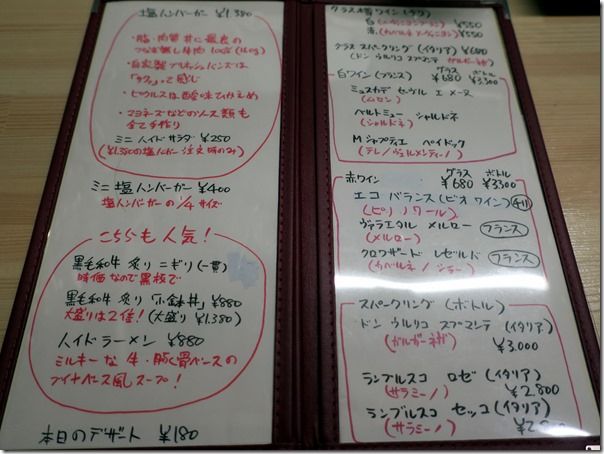 塩ハンバーガー ¥1,380
・脂・肉質共に最良の
つなぎ無し牛肉100%(160g)
・自家製ブリオッシュバンズは
って感じ
・ピクルスは酸味ひかえめ
・マヨネーズなどのソース類も
全て手作り
ミニ ハイドサラダ ¥250
(¥1,380の塩ハンバーガー注文時のみ)
ミニ塩ハンバーガー ¥400
塩ハンバーガーの1/4サイズ
こちらも人気!
黒毛和牛 炙り ニギリ(一貫)
時価なので黒板で
黒毛和牛 炙り「小鉢丼」¥880
大盛りは2倍!(大盛り ¥1,380)
ハイドラーメン ¥880
ミルキーな 牛・豚・骨ベースの
風スープ!
本日のデザート ¥180
グラス樽ワイン(チリ)
白(ソーヴィニヨンブラン) ¥550
赤(カベルネソーヴィニヨン) ¥550
グラス スパークリング(イタリア) ¥680
ドン ウルリコ スプマンテ (ガルガーネガ)
白ワイン(フランス) グラス ¥680 ボトル ¥3,300
ミュスカデ セーヴル エ メーヌ
(ムロン)
ベルトミュー シャルドネ
(シャルドネ)
M シャプティエ ペイドック
(テレ/ヴェルメンティーノ)
赤ワイン グラス ¥680 ボトル ¥3300
エコ バランス(ビオワイン) チリ
(ピノ ノワール)
ヴァラエタル メルロー フランス
(メルロー)
クロワザード レゼルヴド フランス
(カベルネ/シラー)
スパークリング(ボトル)
ドン ウルリコ スプマンテ (イタリア)
(ガルガーネガ) ¥3,000
ランブルスコ ロゼ(イタリア)
(サラミーノ) ¥2,800
ランブルスコ セッコ(イタリア)
(サラミーノ)